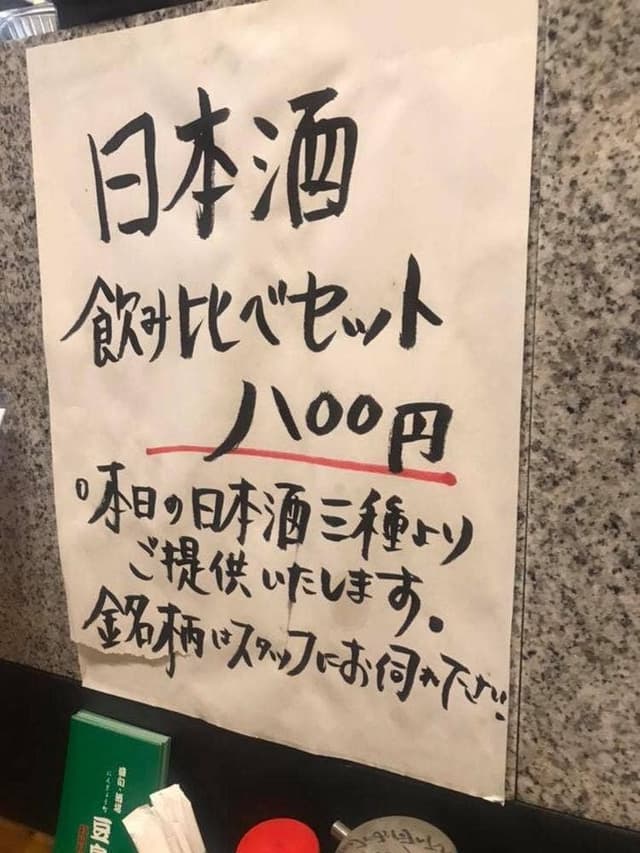 日本酒
飲み比べセット
八〇〇円
本日の日本酒三種より
ご提供いたします。
銘柄はスタッフにお伺れ下さい